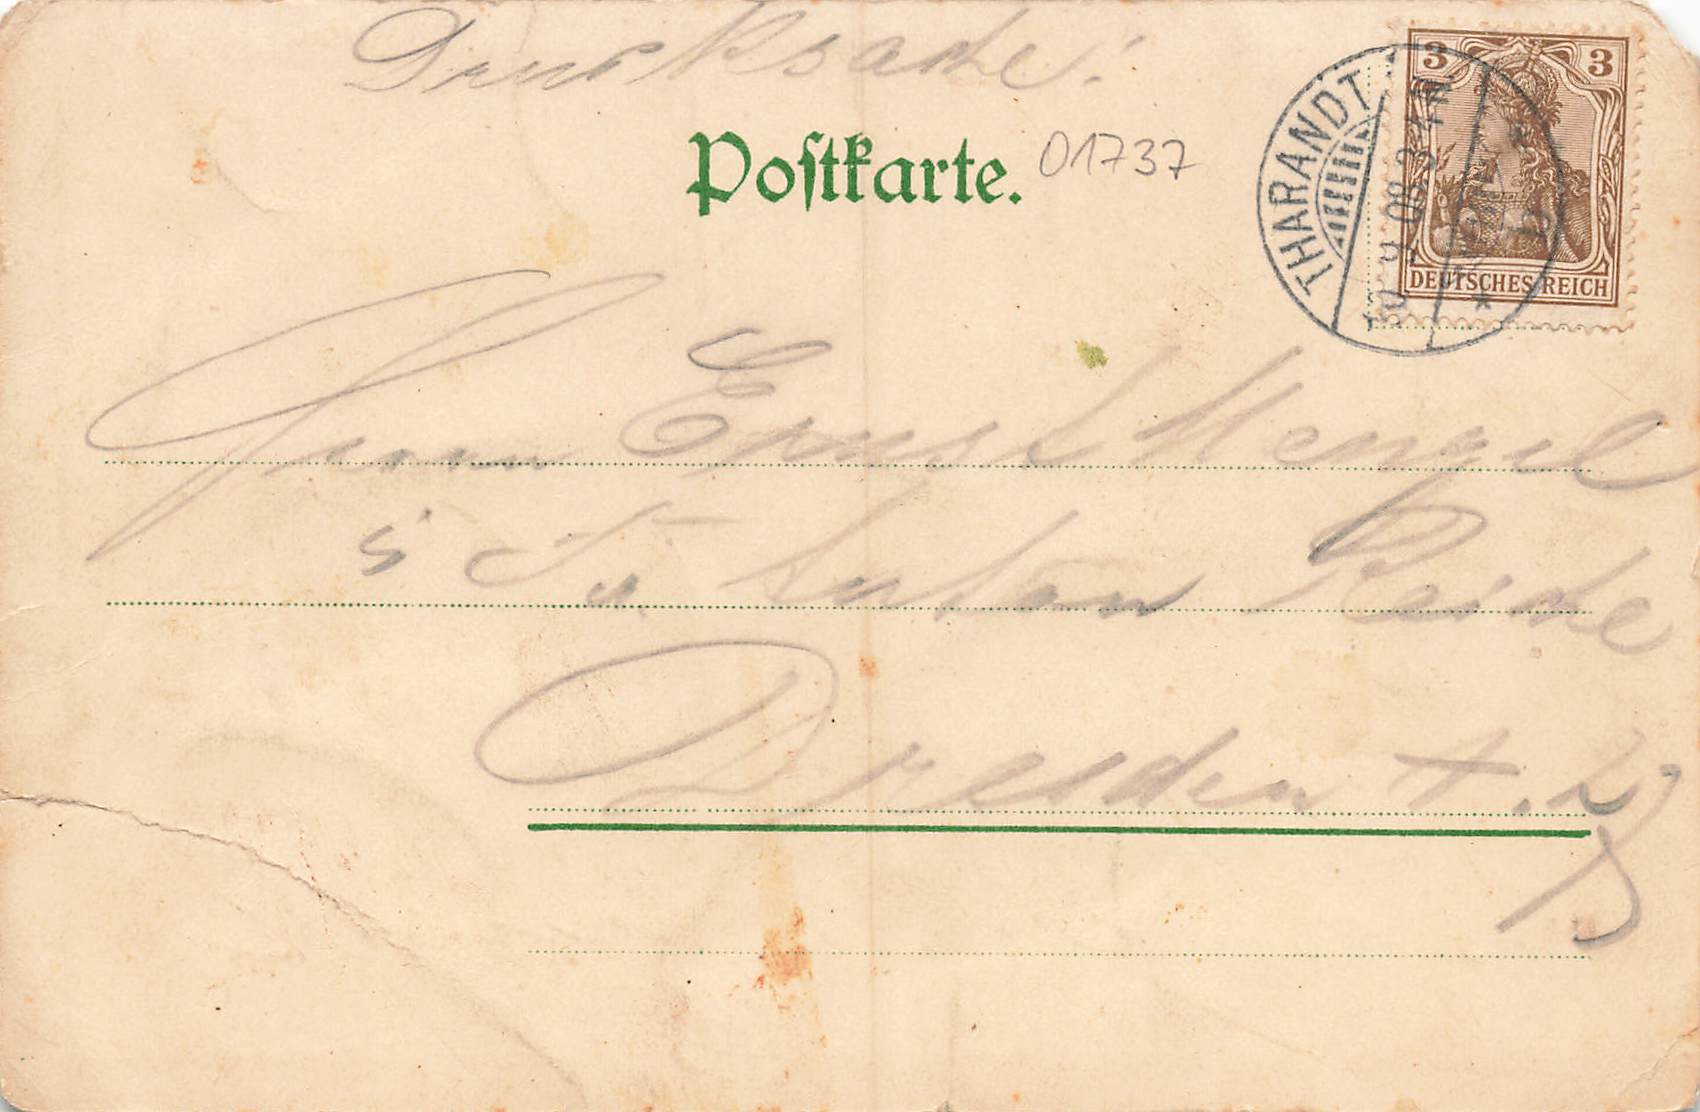 Drucksache!
Postkarte. 01737
THARANDT
08. 3-4 N.
3 3
DEUTSCHES REICH
Herrn Ernst Mengel
i Fa Anton Reiche
Dresden A.